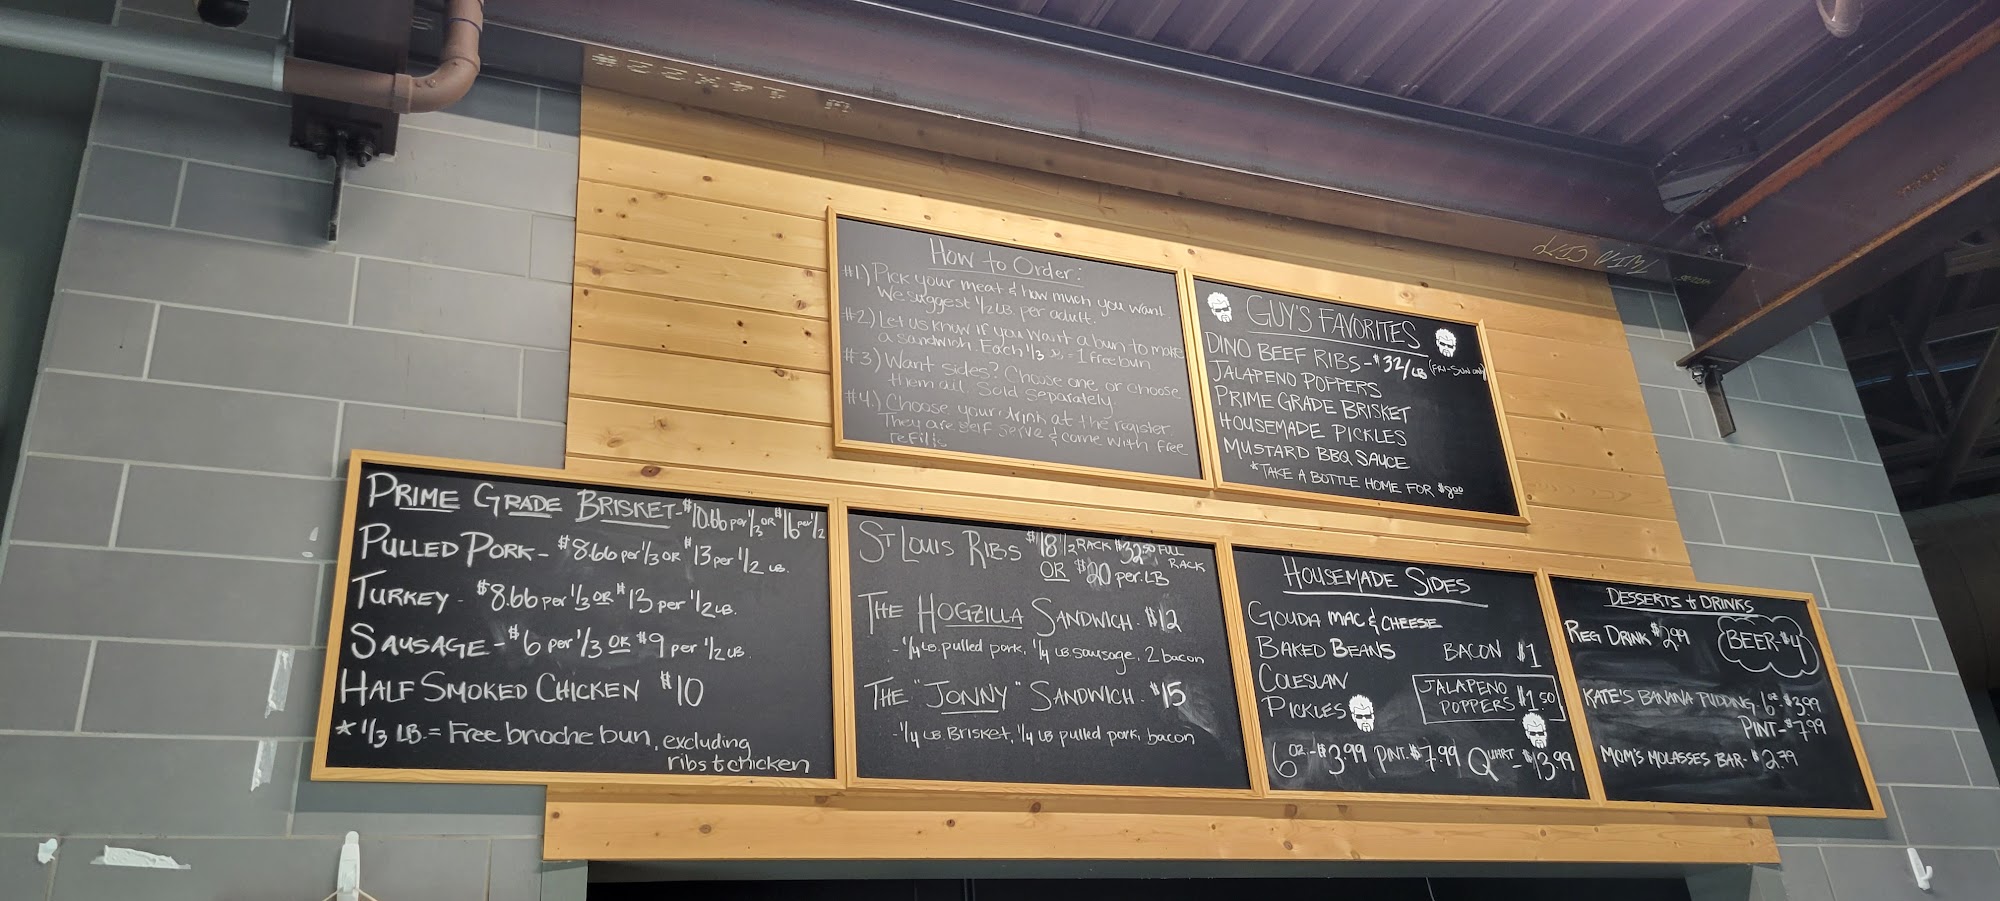 How to Order:
#1) Pick your meat & how much you want.
We suggest 1/2 LB per adult.
#2) Let us know if you want a bun to make
a sandwich. Each 1/3 = 1 free bun
#3) Want sides? Choose one or choose
them all. Sold separately
#4.) Choose your drink at the register.
They are self serve & come with free
refills
GUY'S FAVORITES
DINO BEEF RIBS - $32/LB (FRI-SUN only)
JALAPENO POPPERS
PRIME GRADE BRISKET
HOUSEMADE PICKLES
MUSTARD BBQ SAUCE
*TAKE A BOTTLE HOME FOR $8.00
PRIME GRADE BRISKET - $10.66 per 1/3 OR $16 per 1/2
PULLED PORK - $8.66 per 1/3 OR $13 per 1/2 LB.
TURKEY - $8.66 per 1/3 OR $13 per 1/2 LB.
SAUSAGE - $6 per 1/3 OR $9 per 1/2 LB
HALF SMOKED CHICKEN $10
* 1/3 LB. = Free brioche bun, excluding
ribs & chicken
ST LOUIS RIBS $18 1/2 RACK $32.50 FULL RACK
OR $20 per LB
THE HOGZILLA SANDWICH - $12
- 1/4 LB pulled pork, 1/4 LB sausage, 2 bacon
THE "JONNY" SANDWICH - $15
- 1/4 LB Brisket, 1/4 LB pulled pork, bacon
HOUSEMADE SIDES
GOUDA MAC & CHEESE
BAKED BEANS
COLESLAW
PICKLES
BACON $1
JALAPENO POPPERS $1.50
6 oz. - $3.99 PINT - $7.99 QUART - $13.99
DESSERTS & DRINKS
REG DRINK $2.99
BEER - $4
KATE'S BANANA PUDDING - 6 oz - $3.99
PINT - $7.99
MOM'S MOLASSES BAR - $2.79